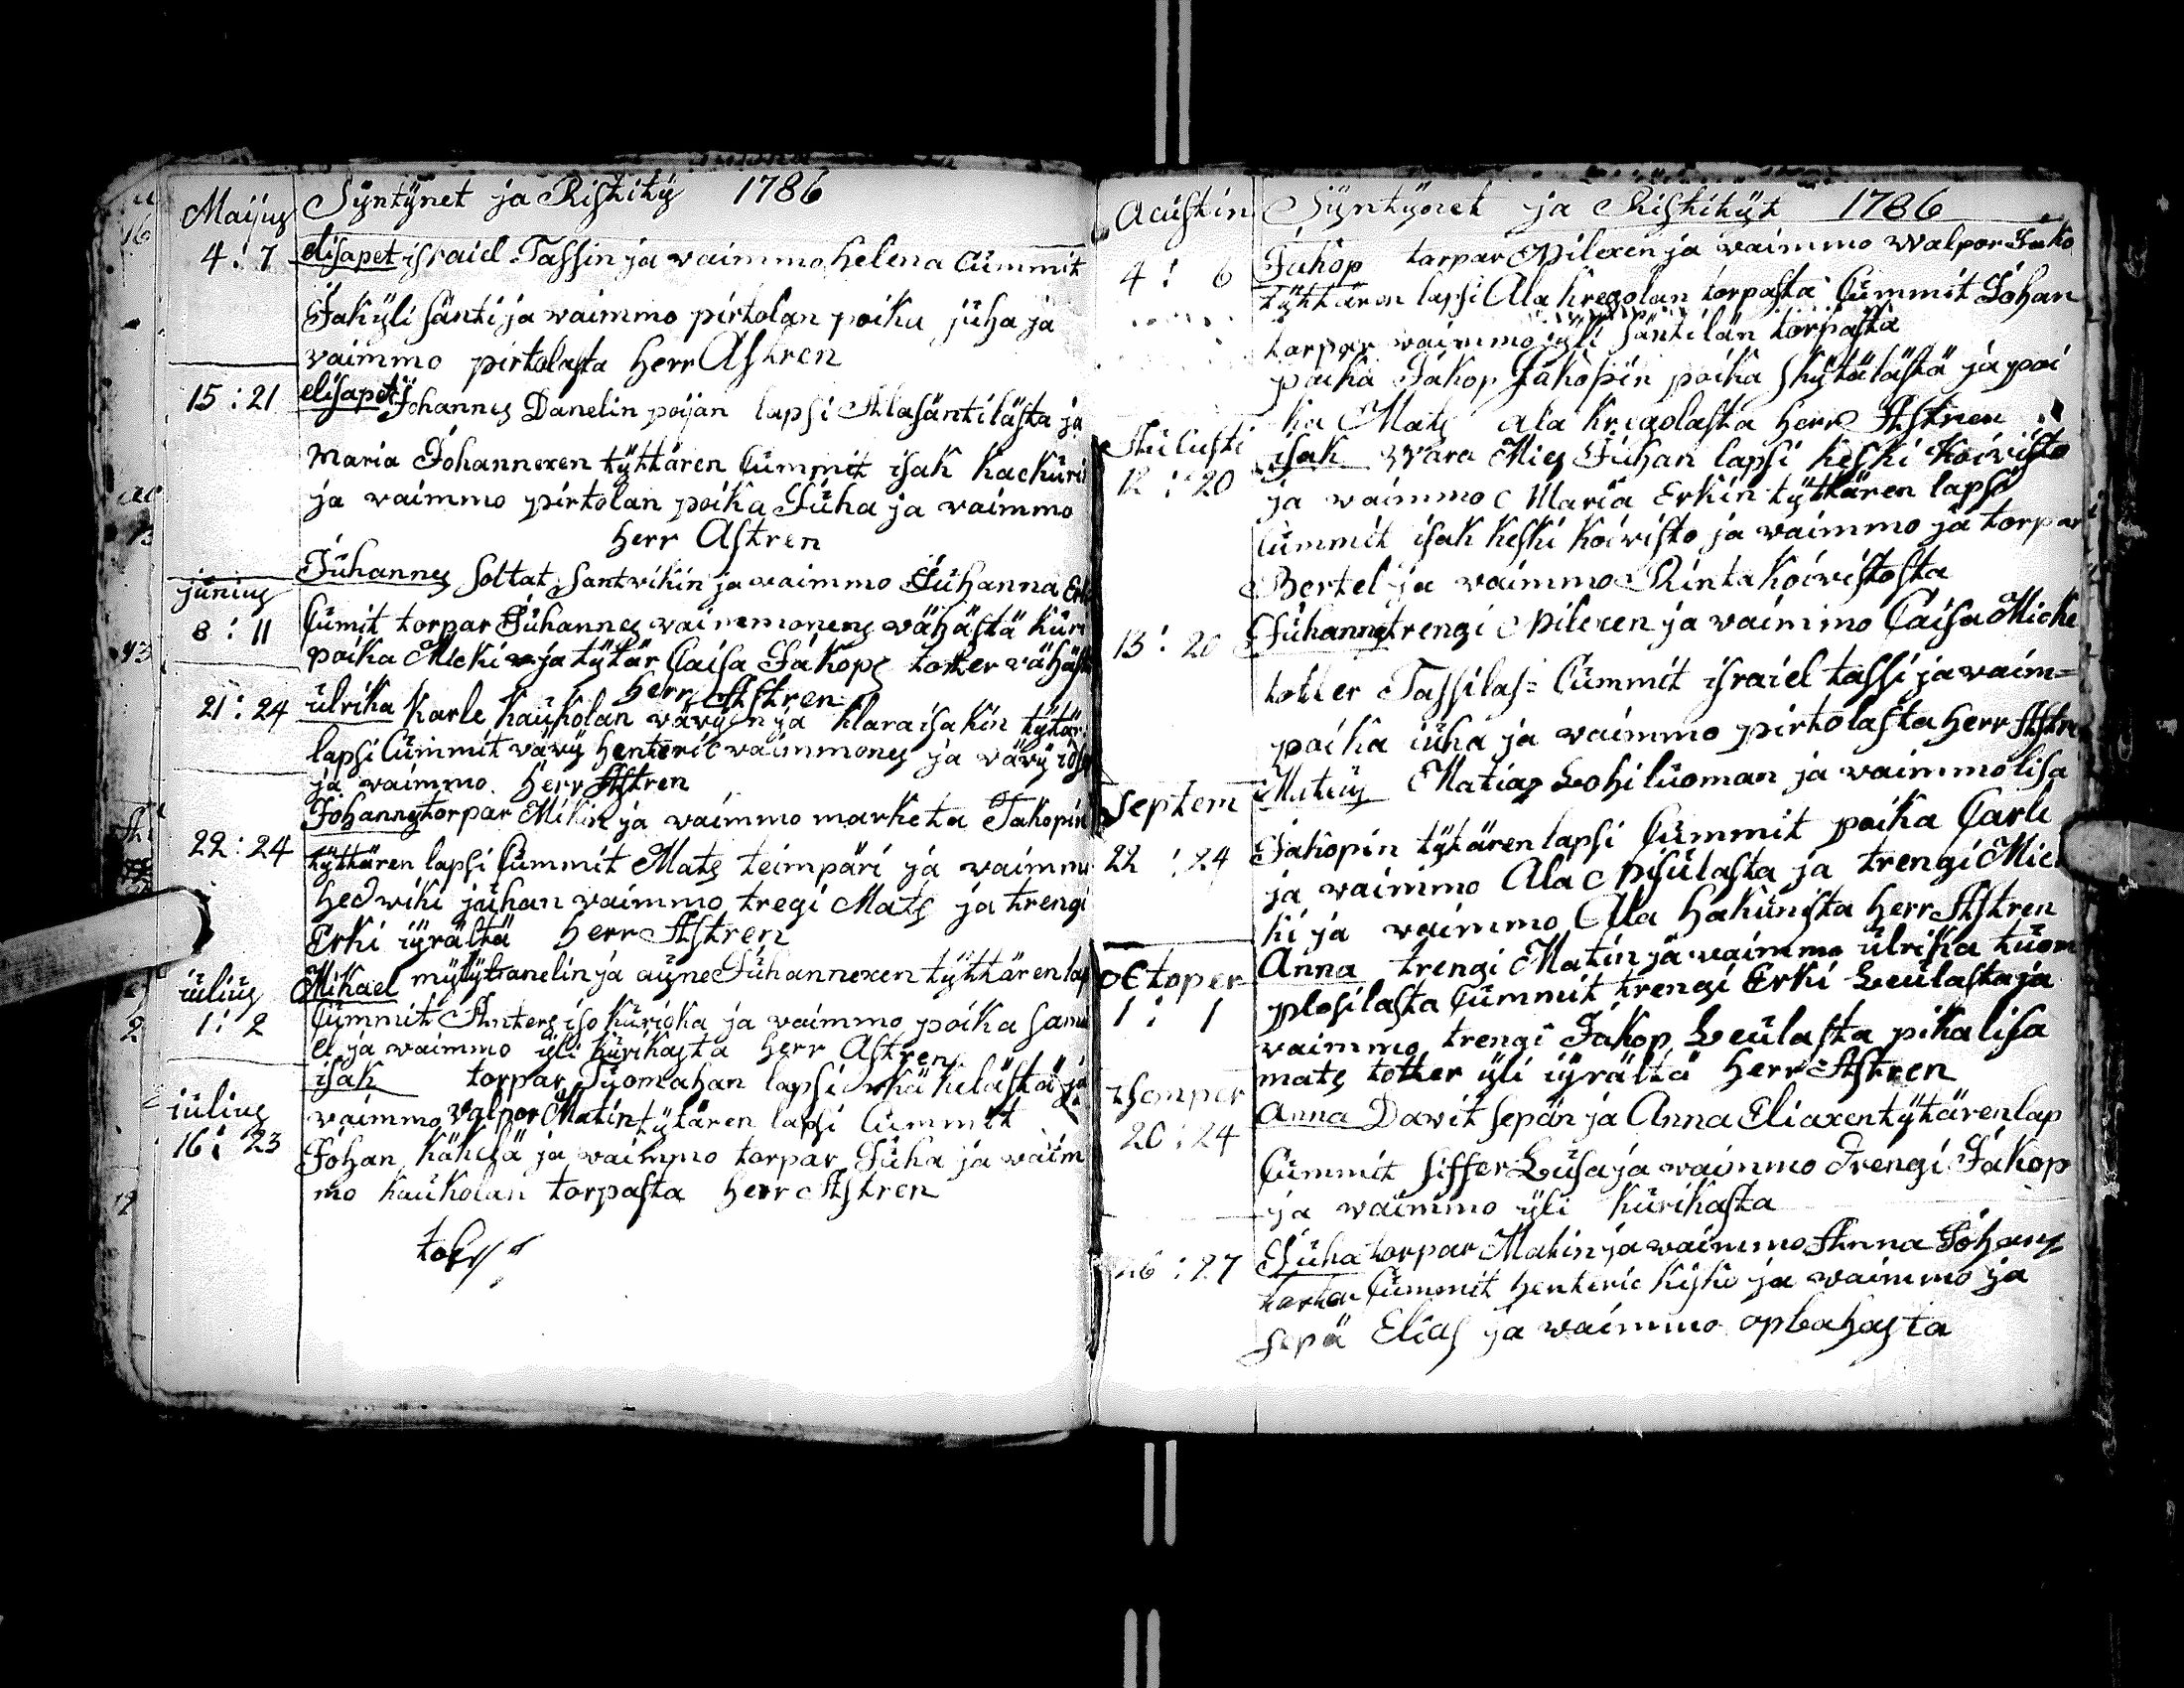 Maijus Syntynet ja Ristity 1786
4 : 7 elisapet israiel Tassin ja waimmo helena Cummit
Jakyli santi ja waimmo pirtolan poika juha ja
waimmo pirtolasta herr Astren
15 : 21 elisapet Johannes Danelin poijan lapsi Alasäntilästä ja
Maria Johannexen tyttären Cummit isak
ja waimmo pirtolan poika Juha ja waimmo
herr Astren
junius Juhannes soltat santwikin ja waimmo Juhanna
8 : 11 Cumit torpar Juhannes waimmonens wähästä
poika Micki ja tytär Caisa Jakops totter
herr Astren
21 : 24 ulrika karle kaukolan wäwyn ja klara isakin tytär
lapsi Cummit wäwy henteric waimmones ja wäwy
ja waimmo herr Astren
Johannes torpar Mikin ja waimmo marketa Jakopin
22 : 24 tyttären lapsi Cummit Mats teimpäri ja waimmo
hedwiki juhan waimmo tregi Mats ja trengi
Erki iyrältä herr Astren
Mikael ja Juhannexen tyttären lap
iulius Cummit Anters iso ja waimmo poika samu
1 : 2 el ja waimmo yli kurikasta herr Astren
isak torpar Tuomahan lapsi ja
iulius waimmo valpor Matin tytären lapsi Cummit
16 : 23 Johan käkelä ja waimmo torpar Juha ja waim
mo kaukolan torpasta herr Astren
Acustin Syntynet ja Ristityt 1786
4 : 6 Jakop torpar Nilexen ja waimmo walpor Jako
tyttären lapsi Ala kregolan torpasta Cummit Johan
torpar waimmo yli säntilän torpasta
poika Jakop Jakopin poika skytälästä ja poi
ka Mats ala kregolasta herr Astren
isak wara Mies Juhan lapsi keski koivisto
12 : 20 ja waimmo Maria Erkin tyttären lapsi
Cummit isak keski koivisto ja waimmo ja torpar
Bertel ja waimmo Rintakoivistosta
13 : 20 Juhannes trengi Nilexen ja waimmo Caisa Micke
totter Tassilas= Cummit israiel tassi ja waim=
poika iuha ja waimmo pirtolasta herr Astre
Septem Mateus Matias Lohiluoman ja waimmo lisa
22 : 24 Jakopin tytären lapsi Cummit poika Carle
ja waimmo Ala ja trengi Mic
ki ja waimmo Ala hakunista herr Astren
Octoper Anna trengi Matin ja waimmo ulrika tuom
1 : 1 plosilasta Cummit trengi Erki Leulasta ja
waimmo trengi Jakop Leulasta pika lisa
mats totter yli iyrältä herr Astren
Anna Dawit sepän ja Anna Eliaxen tytären lap
20 : 24 Cummit siffer Luisa ja waimmo Trengi Jakop
ja waimmo yli kurikasta
26 : 27 Juha torpar Matin ja waimmo Anna Johans
Cummit henteric kisko ja waimmo ja
sepä Elias ja waimmo